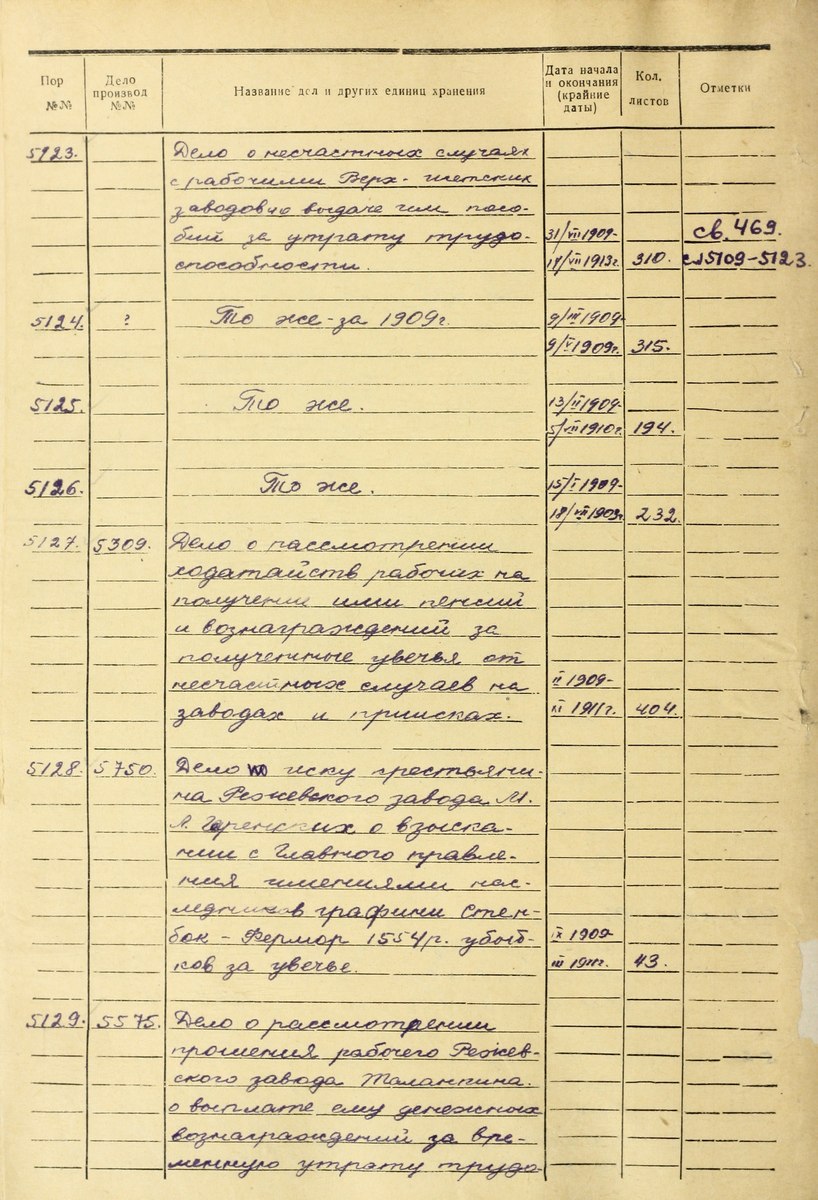 Пор №№
Дело производ №№
Название дел и других единиц хранения
Дата начала и окончания (крайние даты)
Кол. листов
Отметки
5123.
Дело о несчастных случаях
с рабочими Верх-Исетских
заводов и о выдаче им посо-
бий за утрату трудо-
31/VII 1909-
св. 469.
способности.
17/VII 1913г.
310.
5109-5123.
5124.
?
То же - за 1909г.
9/III 1909-
9/V 1909г.
315.
5125.
То же.
13/II 1909-
1910г.
194.
5126.
То же.
15/I 1909-
232.
5127.
5309.
Дело о рассмотрении
ходатайств рабочих на
получение ими пенсий
и вознаграждений за
полученные увечья от
II 1909-
несчастных случаев на
заводах и приисках.
1911г.
404.
5128.
5750.
Дело по иску крестьяни-
на Режевского завода М.
о взыска-
нии с Главного правле-
ния имениями нас-
ледников графини Стен-
бок-Фермор 1554р. убыт-
IX 1909-
ков за увечье.
III
43.
5129.
5575.
Дело о рассмотрении
прошения рабочего Режев-
ского завода Таланкина
о выплате ему денежных
вознаграждений за вре-
менную утрату трудо-